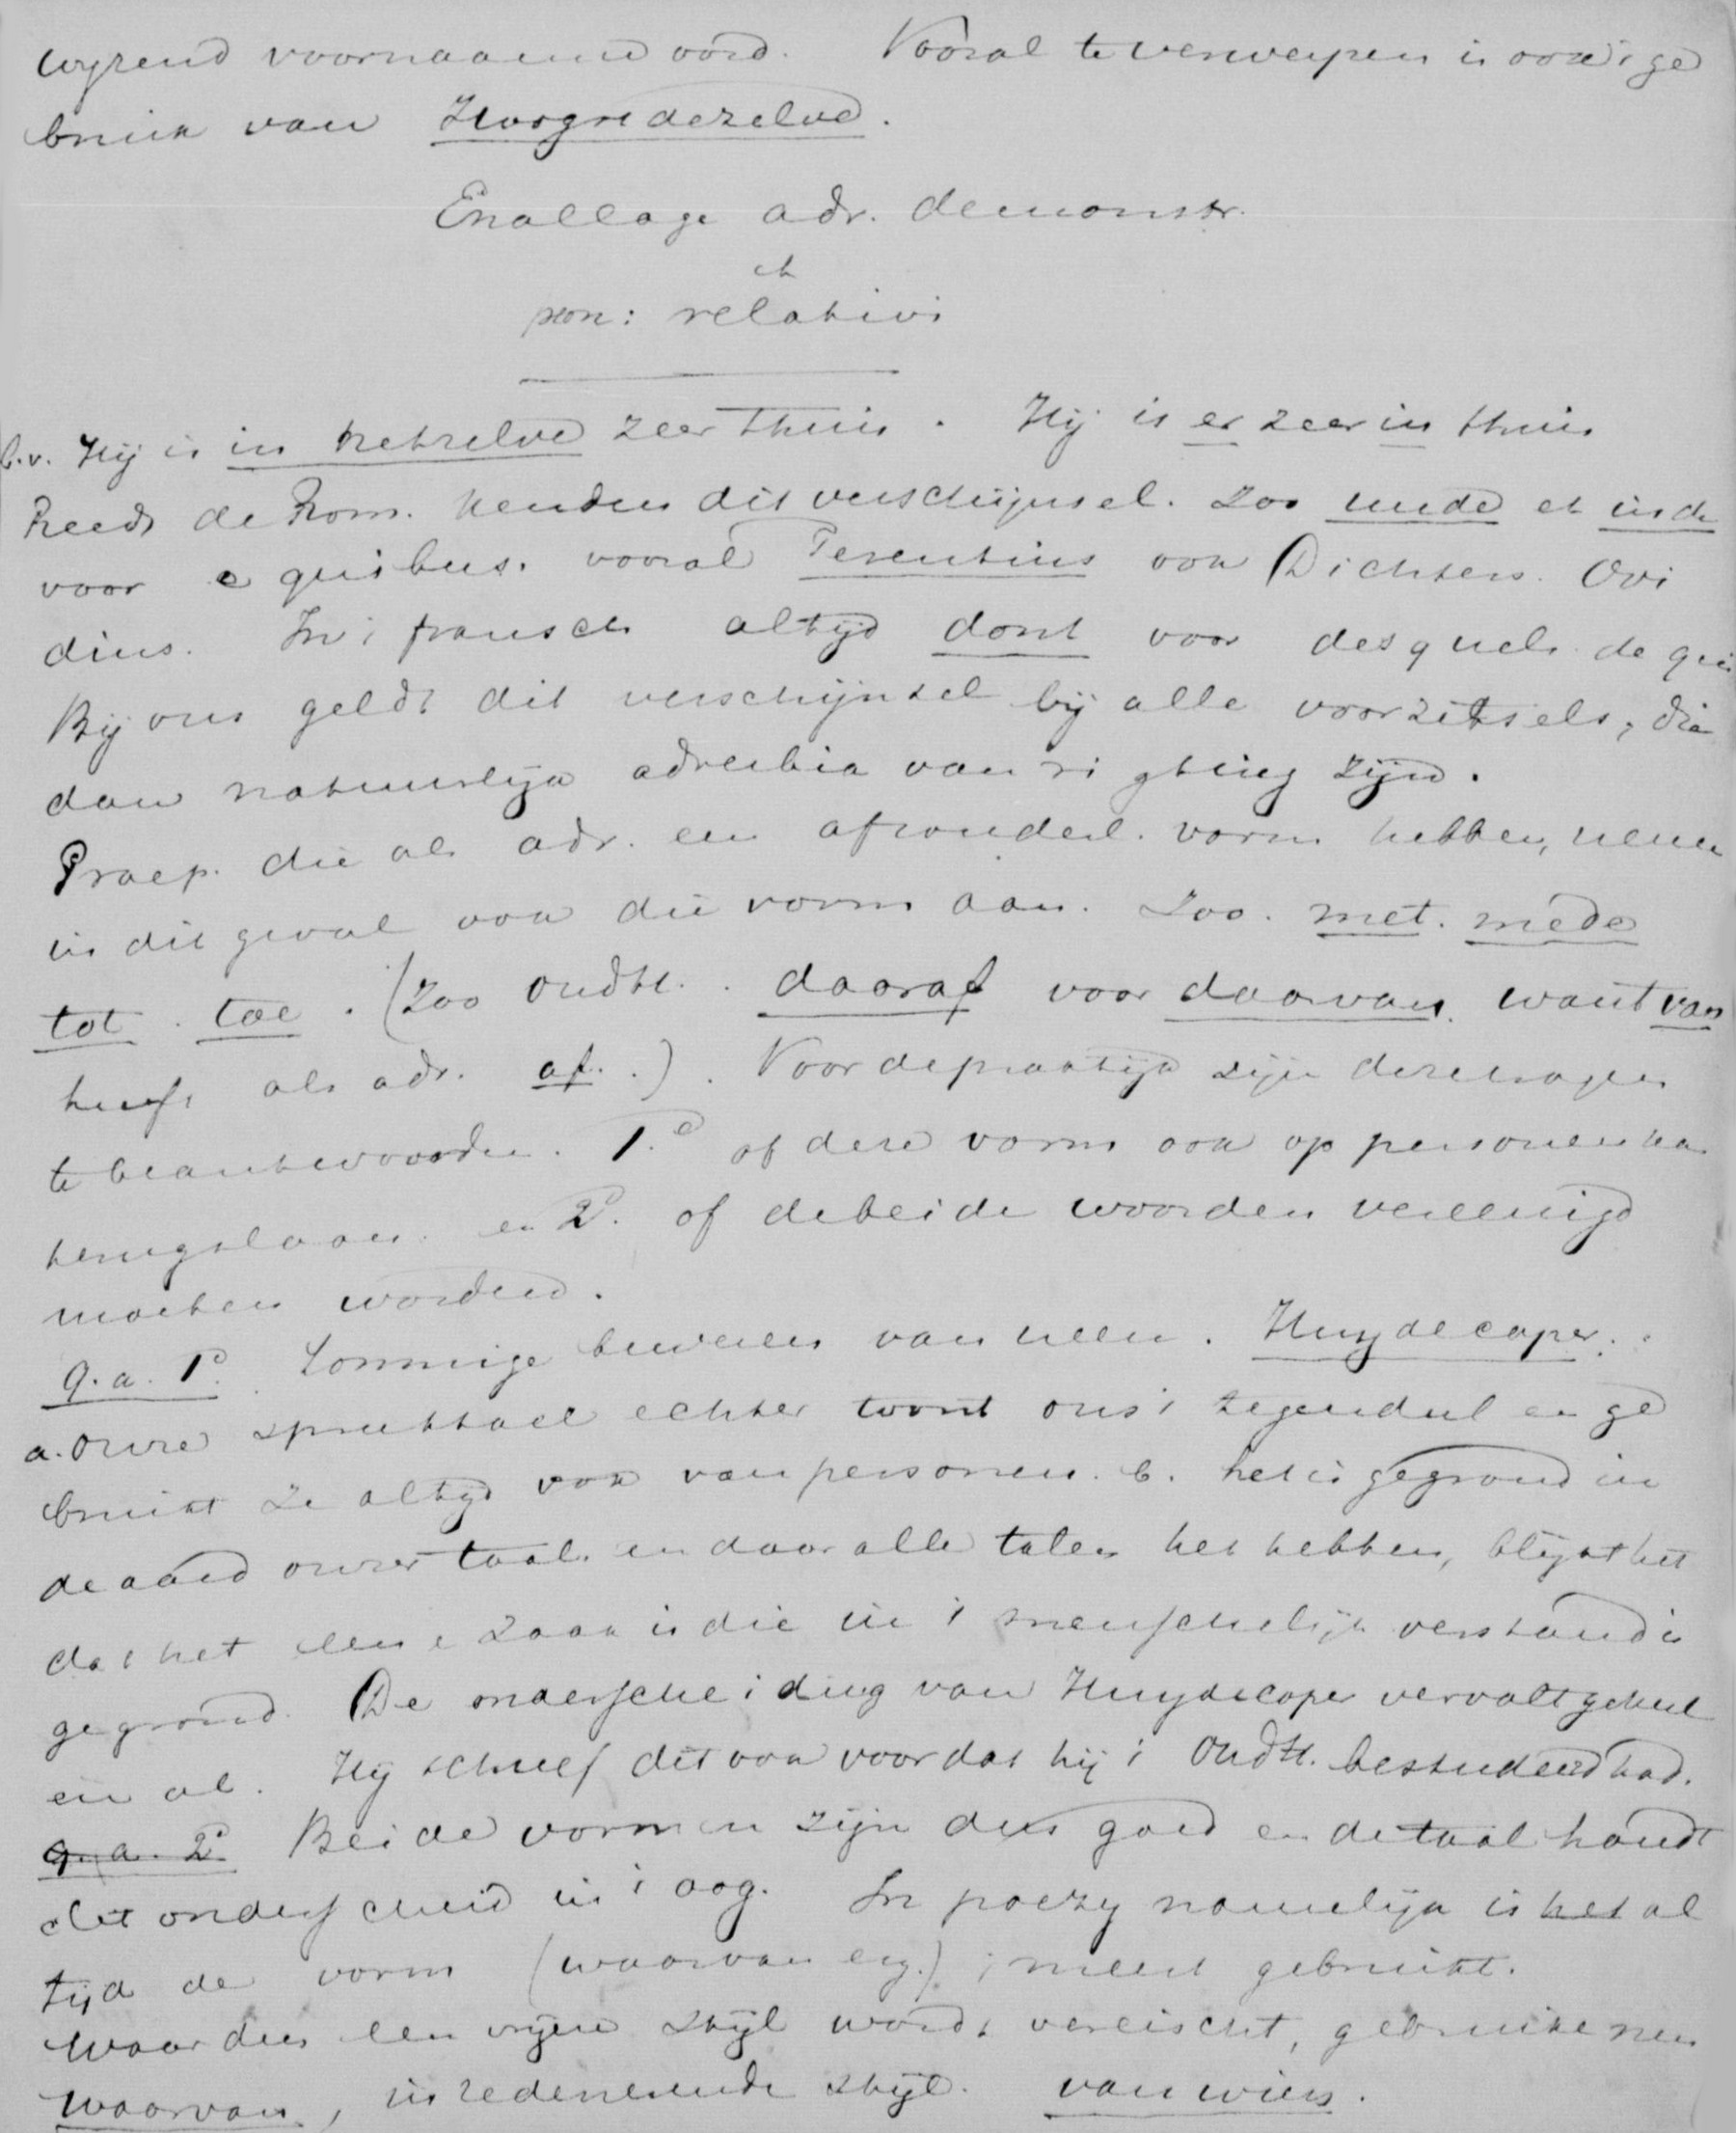 wijzend voornaamwoord. Vooral te verwerpen is ook 't ge
bruik van Hoogstdezelve.
Enallage adv. demonstr.
et
pron: relativi
b.v. Hij is in hetzelve zeer thuis. Hij is er zeer in thuis
Reeds de Rom. kenden dit verschijnsel. Zoo unde et inde
voor e quibus. vooral Terentius ook Dichters. Ovi
dius. In 't fransch altijd dont voor desquels de qui
Bij ons geldt dit verschijnsel bij alle voorzetsels, die
dan natuurlijk adverbia van rigting zijn.
Praep. die als adv. een afzonderl. vorm hebben, nemen
in dit geval ook die vorm aan. Zoo. met. mede
tot. toe. (Zoo oudtt. . daaraf voor daarvan. want van
heeft als adv. af. .). Voor de praktijk zijn deze vragen
te beantwoorden. 1.o of deze vorm ook op personen kan
terugslaan. en 2o. of de beide woorden vereenigd
moeten worden.
q.a. 1o. Sommige beweren van neen. Huydecoper.
a. onze spreektaal echter toont ons 't tegendeel en ge
bruikt ze altijd ook van personen. b. het is gegrond in
de aard onzer taal. en daar alle talen het hebben, blijkt het
dat het eene zaak is die in 't menschelijk verstand is
gegrond. De onderscheiding van Huydecoper vervalt geheel
en al. Hij schreef dit ook voor dat hij 't Oudtt. bestudeerd had.
q.a. 2o Beide vormen zijn dus goed en de taal houdt
dit onderscheid in 't oog. In poezy namelijk is het al
tijd de vorm (waarvan enz.) 't meest gebruikt.
Waar dus een vrijere stijl wordt vereischt, gebruike men
waarvan, in redenerende stijl. van wien.